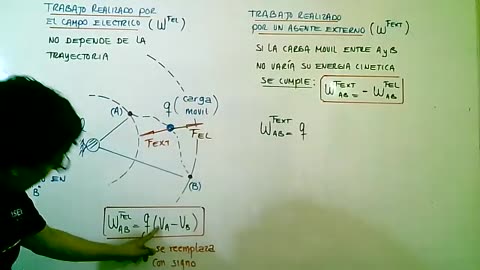 TRABAJO REALIZADO POR
EL CAMPO ELECTRICO (W^FEL)
NO DEPENDE DE LA
TRAYECTORIA
(A)
q (carga
movil)
FEXT
FEL
(B)
EN
B
W_AB^FEL = q (VA - VB)
se reemplaza
con signo
TRABAJO REALIZADO
POR UN AGENTE EXTERNO (W^FEXT)
SI LA CARGA MOVIL ENTRE A y B
NO VARÍA SU ENERGIA CINETICA
SE CUMPLE: W_AB^FEXT = - W_AB^FEL
W_AB^FEXT = q